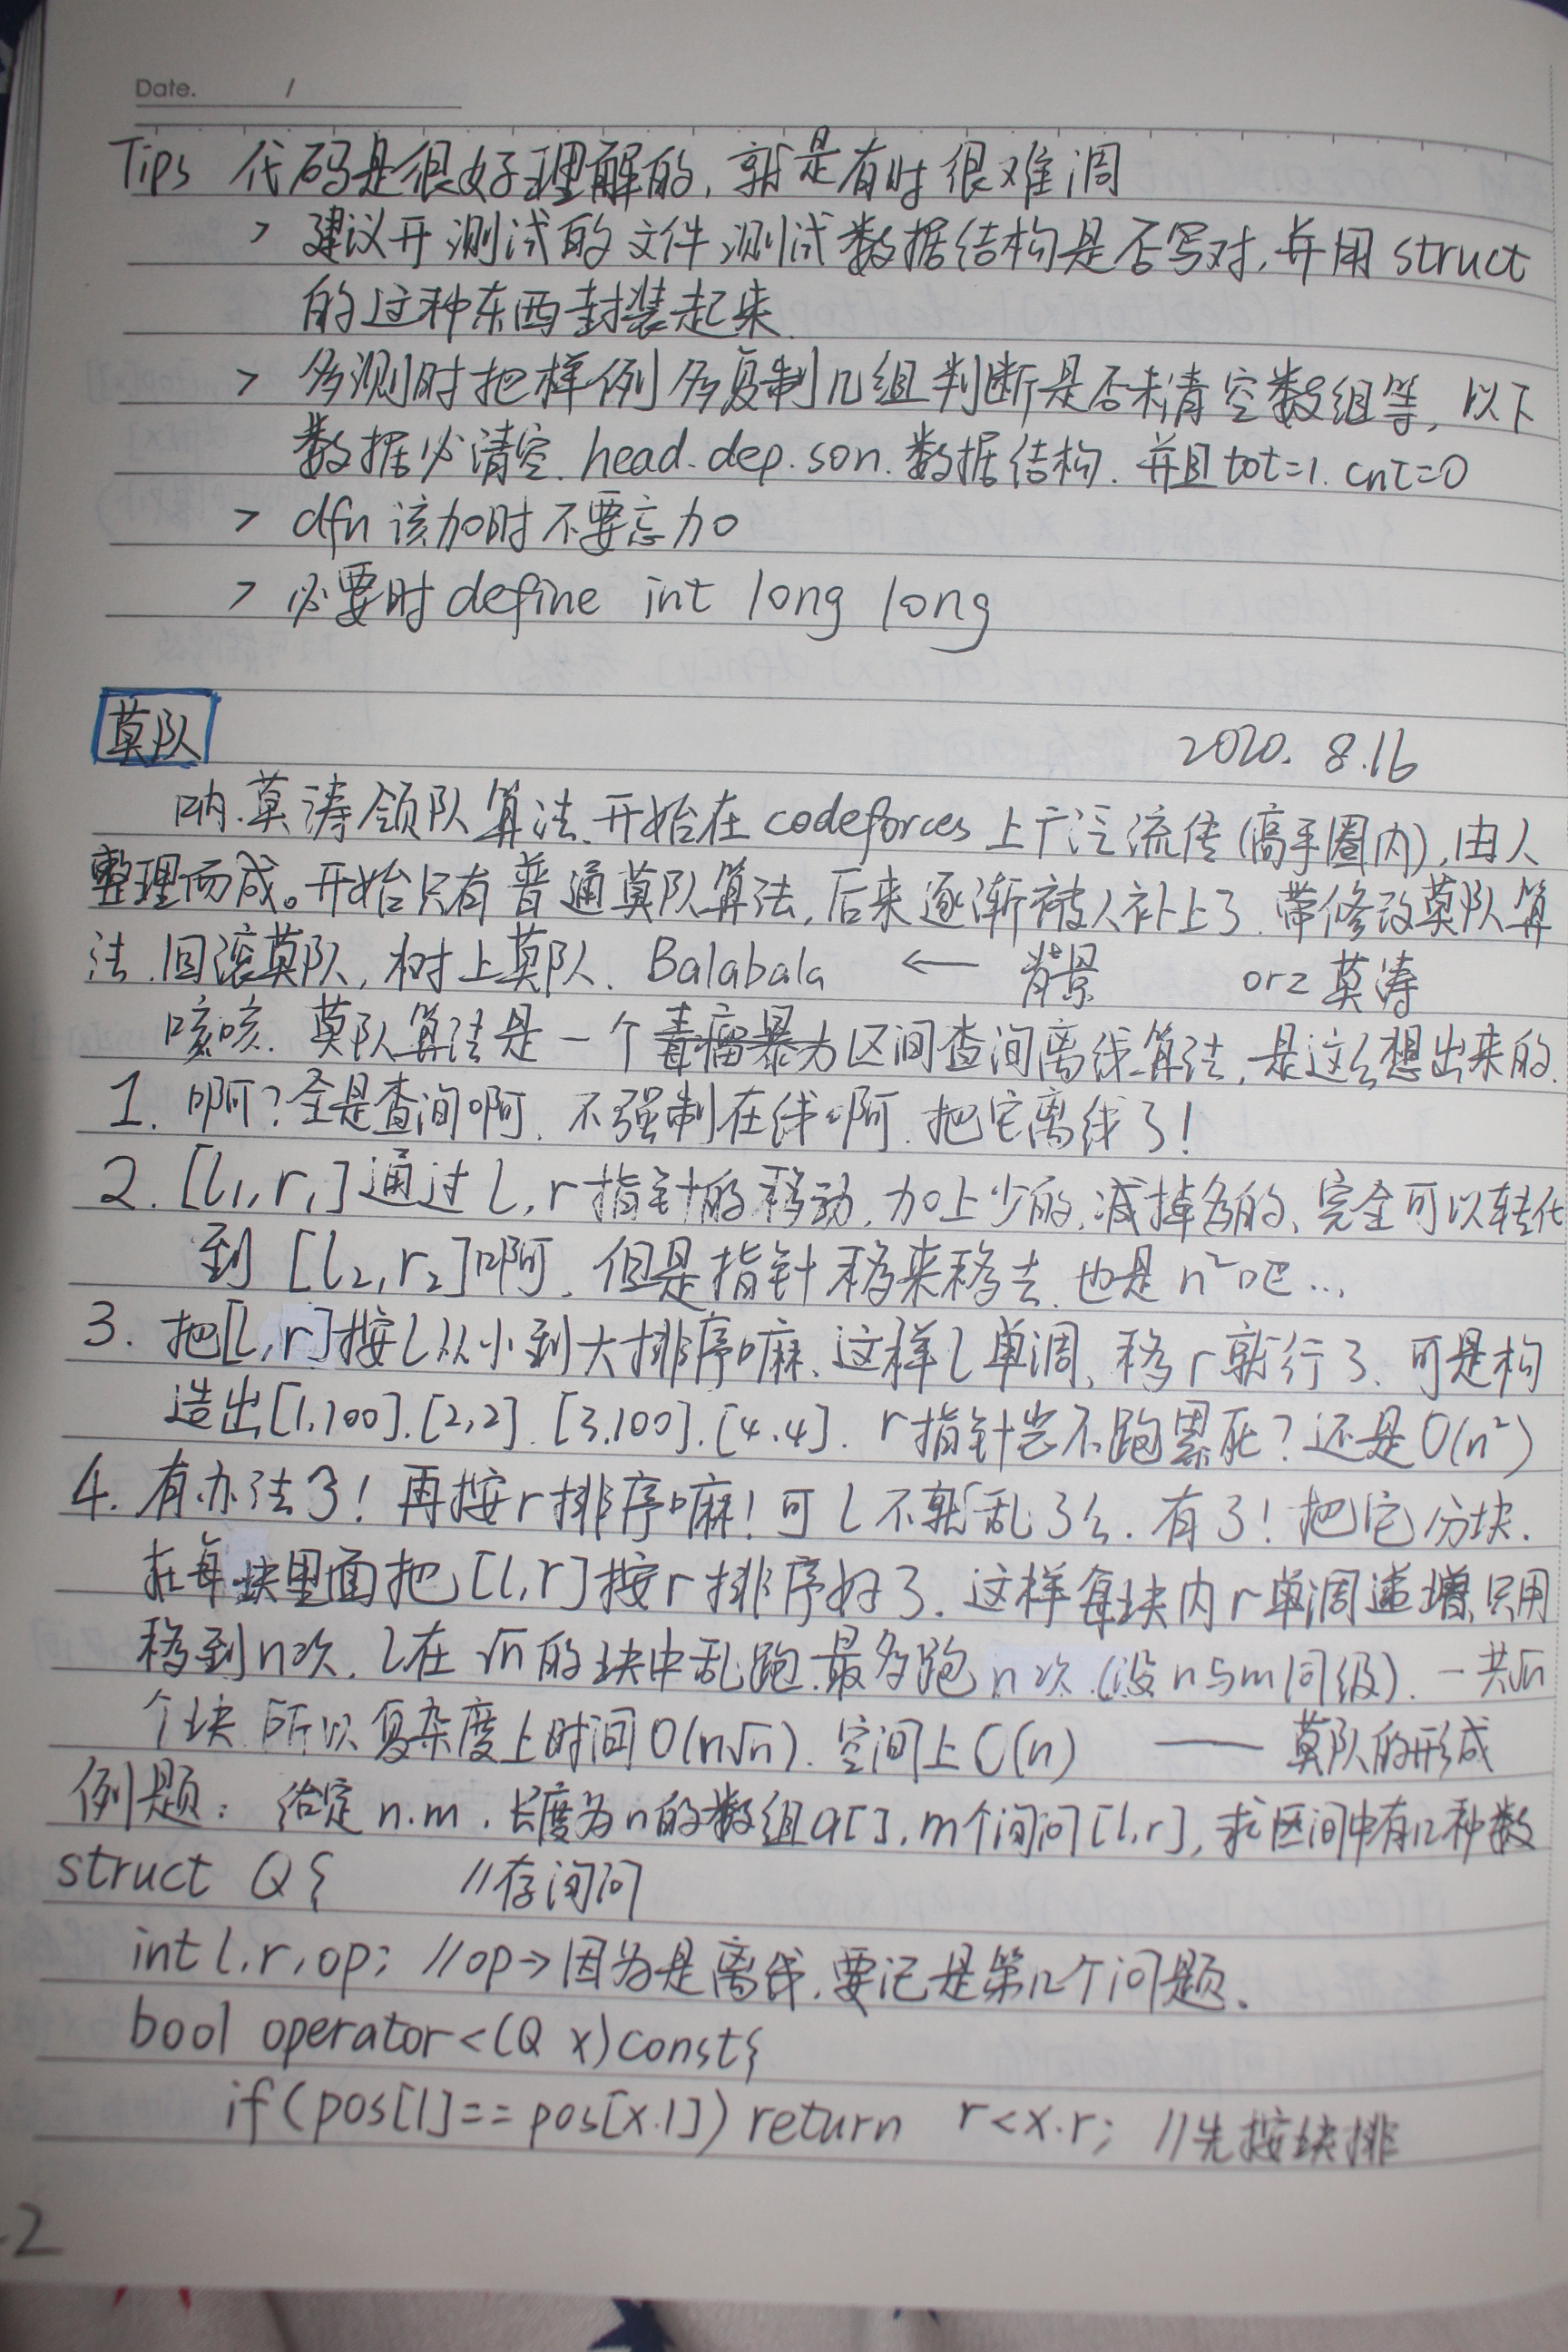 Date. /
Tips 代码是很好理解的,就是有时很难调
> 建议开测试的文件测试数据结构是否写对,并用struct
的这种东西封装起来.
> 多测时把样例多复制几组判断是否未清空数组等,以下
数据必清空.head.dep.son.数据结构.并且tot=1.cnt=0
> dfn该加时不要忘加
> 必要时define int long long
莫队
2020.8.16
呐.莫涛领队算法.开始在codeforces上广泛流传(高手圈内),由人
整理而成。开始只有普通莫队算法,后来逐渐被人补上了.带修改莫队算
法.回滚莫队,树上莫队.Balabala ← 背景 orz 莫涛
咳咳.莫队算法是一个毒瘤暴力区间查询离线算法,是这么想出来的.
1. 啊?全是查询啊.不强制在线啊.把它离线了!
2. [l₁,r₁]通过l,r指针的移动,加上少的,减掉多的、完全可以转化
到[l₂,r₂]啊.但是指针移来移去.也是n²吧...
3. 把[l,r]按l从小到大排序嘛、这样l单调、移r就行了、可是构
造出[1,100].[2,2].[3,100].[4,4]. r指针岂不跑累死?还是O(n²)
4. 有办法了!再按r排序嘛!可l不就乱了么.有了!把它分块.
在每块里面把[l,r]按r排序好了.这样每块内r单调递增只用
移到n次.l在√n的块中乱跑.最多跑n次.(设n与m同级).一共√n
个块.所以复杂度上时间O(n√n).空间上O(n) —— 莫队的形成
例题: 给定n.m.长度为n的数组a[],m个询问[l,r],求区间中有几种数
struct Q{ //存询问
int l,r,op; //op→因为是离线,要记是第几个问题.
bool operator<(Q x)const{
if(pos[l]==pos[x.l]) return r<x.r; //先按块排
2